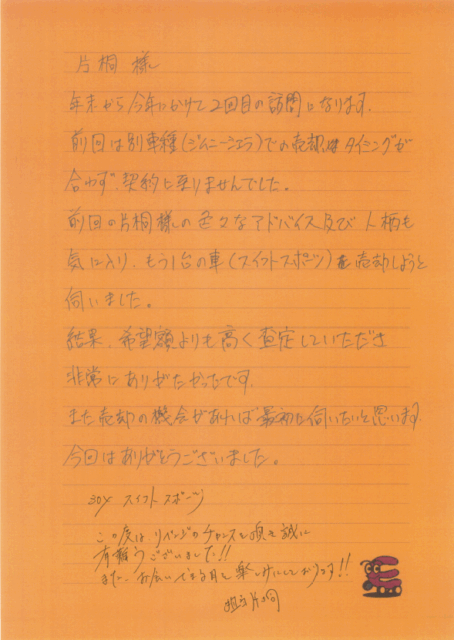 片桐 様
年末から今年にかけて2回目の訪問になります。
前回は別車種(ジムニーシエラ)での売却はタイミングが
合わず、契約に至りませんでした。
前回の片桐様の色々なアドバイス及び人柄も
気に入り、もう1台の車(スイフトスポーツ)を売却しようと
伺いました。
結果、希望額よりも高く査定していただき
非常にありがたかったです。
また売却の機会があれば最初に伺いたいと思います。
今回はありがとうございました。
スイフトスポーツ
この度はリベンジのチャンスを頂き誠に
有難うございました!!
また、お会いできる日を楽しみにしております!!
担当 片桐